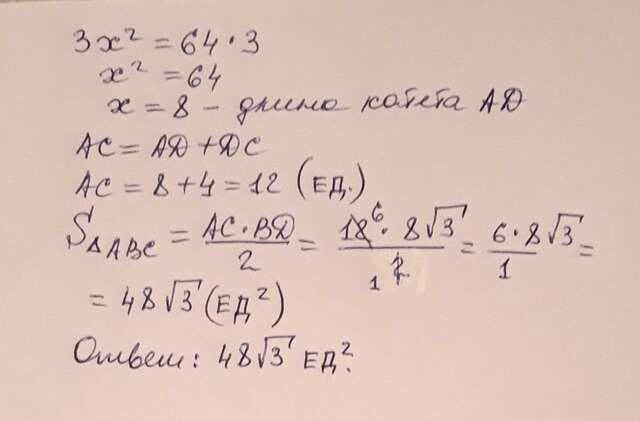 3x² = 64·3
x² = 64
x = 8 – длина катета AD
AC = AD + DC
AC = 8 + 4 = 12 (ЕД.)
S△ABC = AC·BD/2 = 18⁶·8√3/₁2 = 6·8√3/1 =
= 48√3 (ЕД²)
Ответ: 48√3 ЕД².